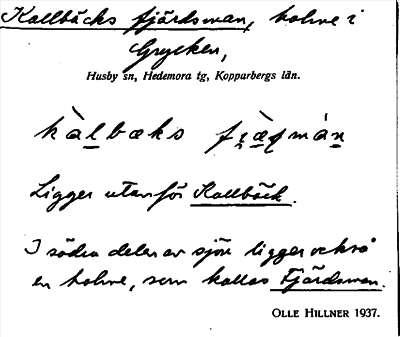 Kallbäcks fjärdsman, holme i
Grycken,
Husby sn, Hedemora tg, Kopparbergs län.
Ligger utanför Kallbäck.
I södra delen av sjön ligger också
en holme, som kallas Fjärdsman.
OLLE HILLNER 1937.